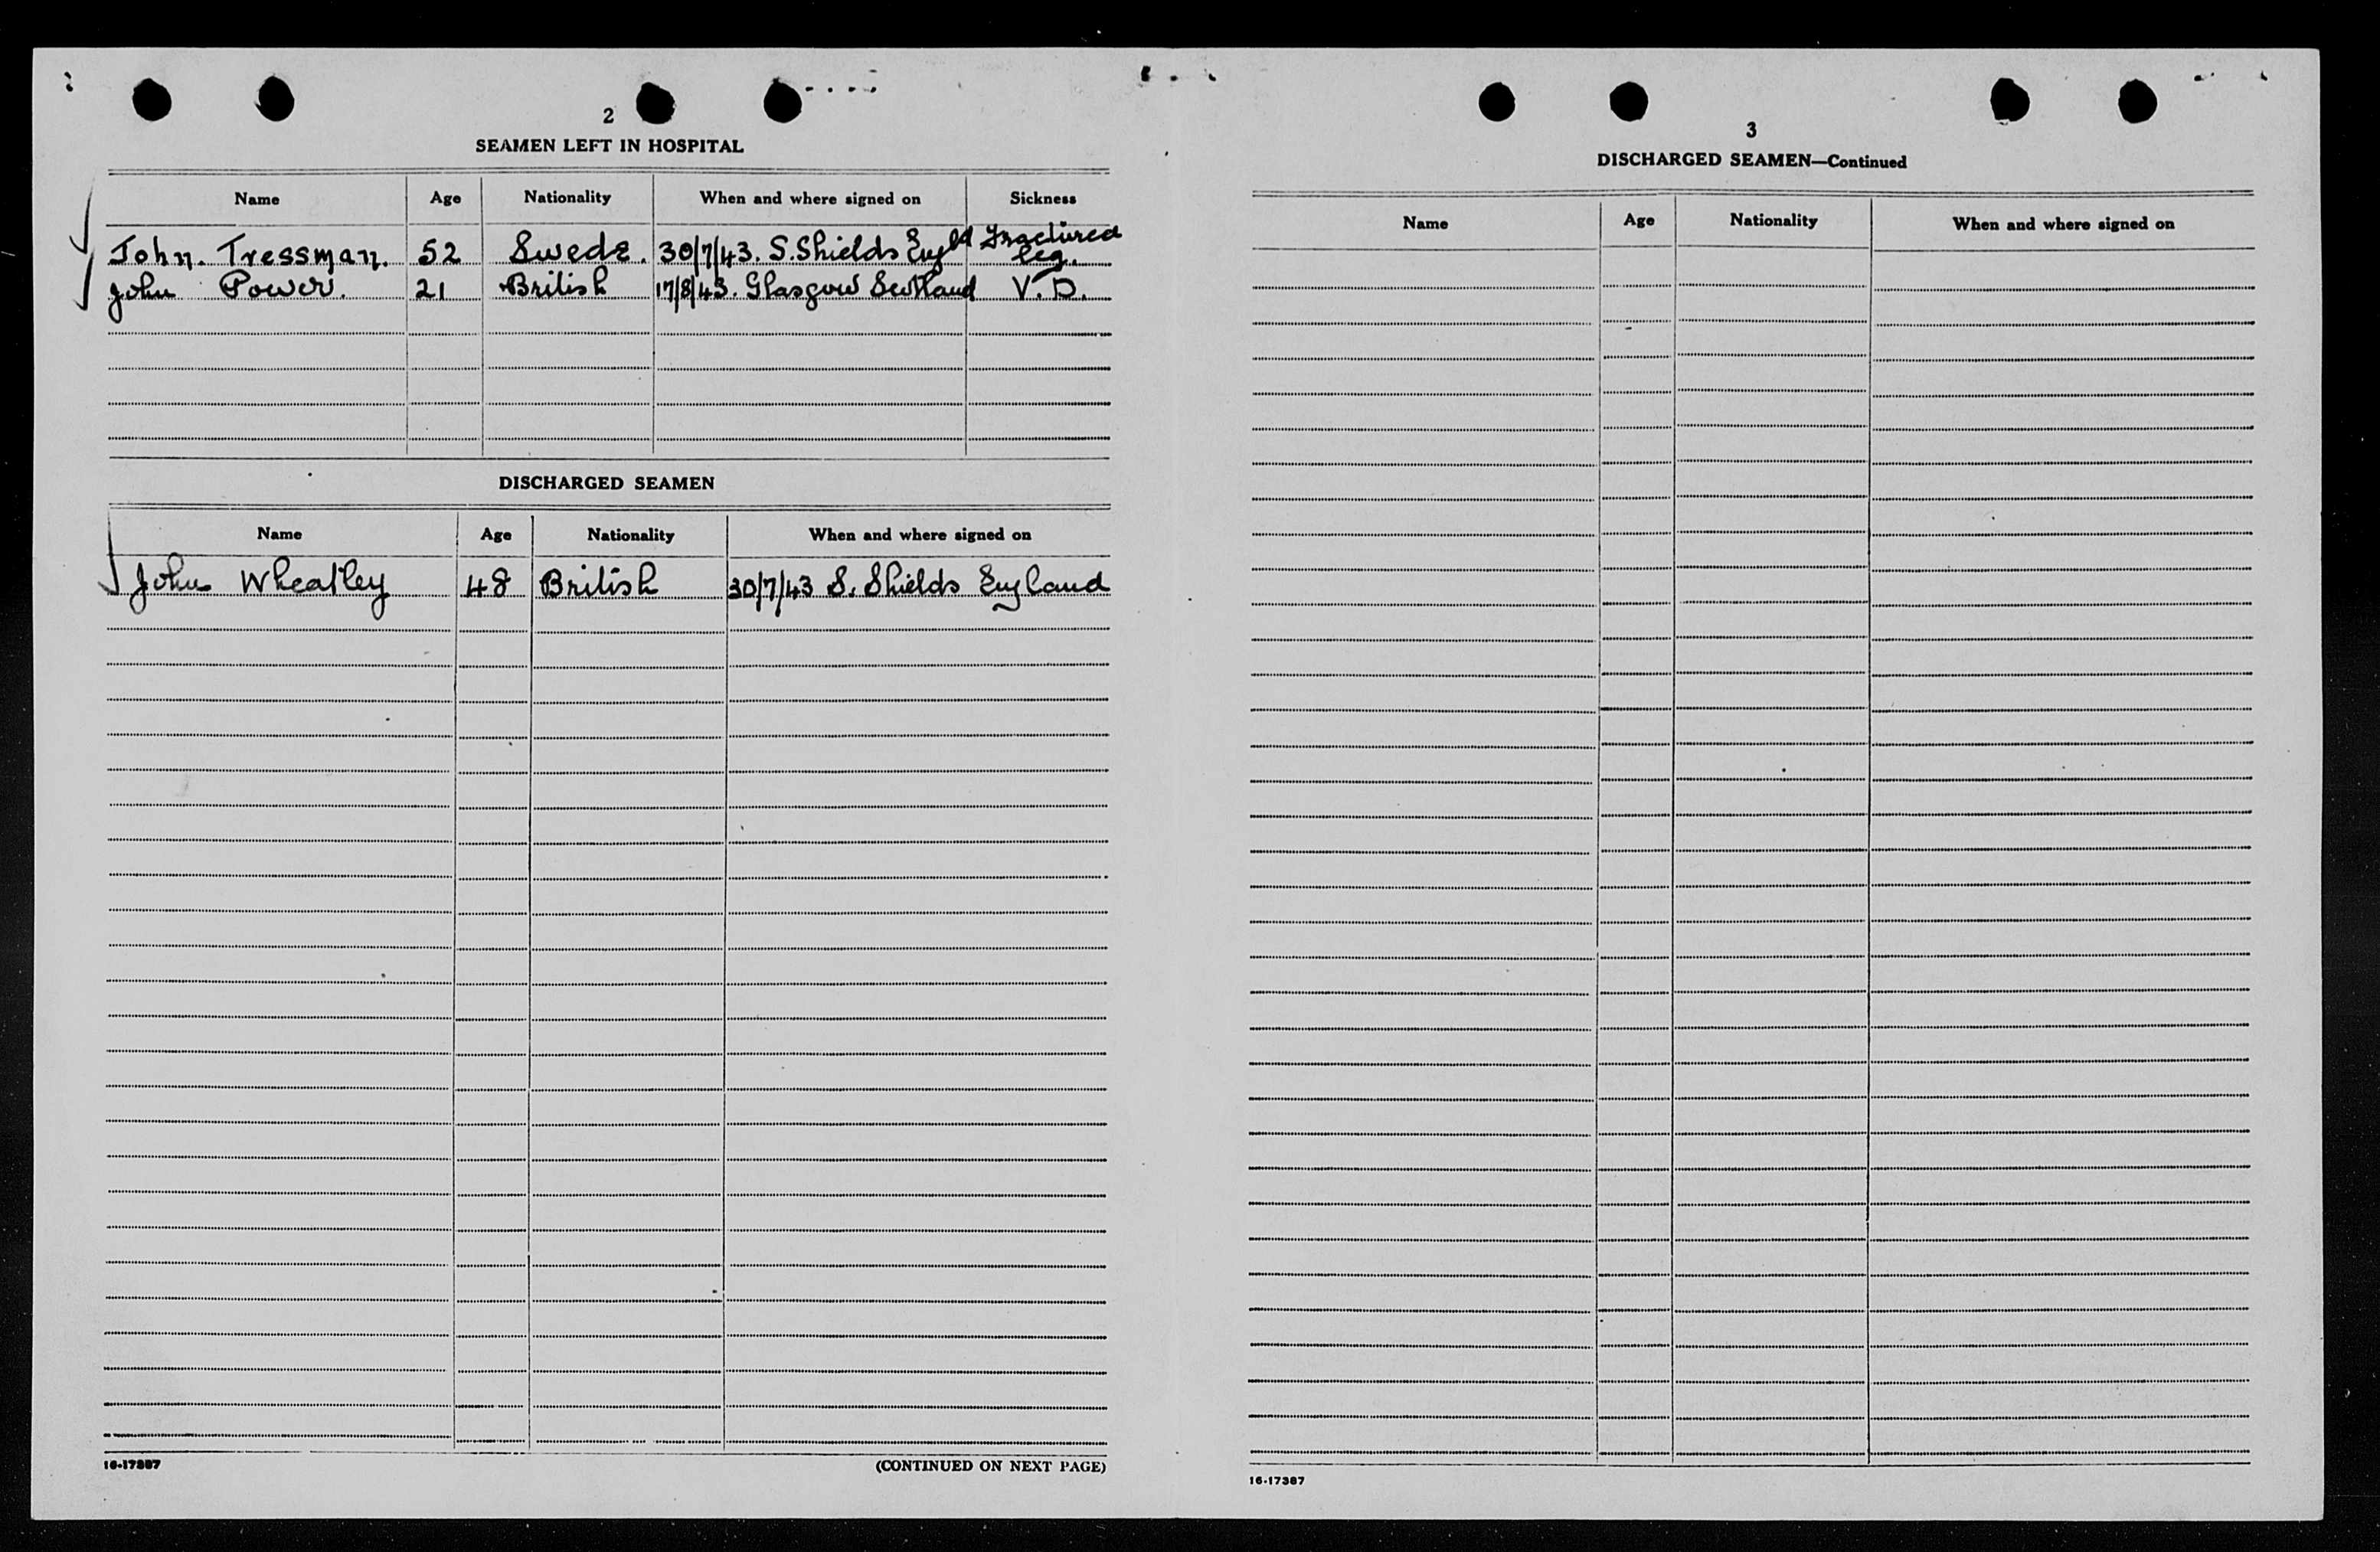 2
SEAMEN LEFT IN HOSPITAL
Name Age Nationality When and where signed on Sickness
John. Tressman. 52 Swede. 30/7/43. S. Shields Engld Fractured leg.
John Power. 21 British 17/8/43. Glasgow Scotland V.D.
DISCHARGED SEAMEN
Name Age Nationality When and where signed on
John Wheatley 48 British 30/7/43 S. Shields England
16-17387
(CONTINUED ON NEXT PAGE)
3
DISCHARGED SEAMEN—Continued
Name Age Nationality When and where signed on
16-17387